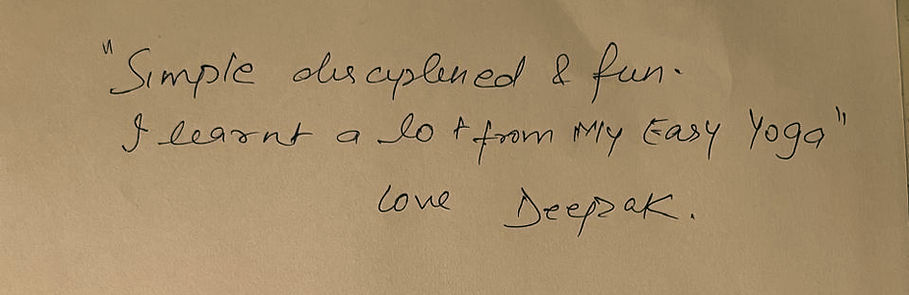 "Simple disciplened & fun.
I learnt a lot from My Easy Yoga"
Love Deepak.